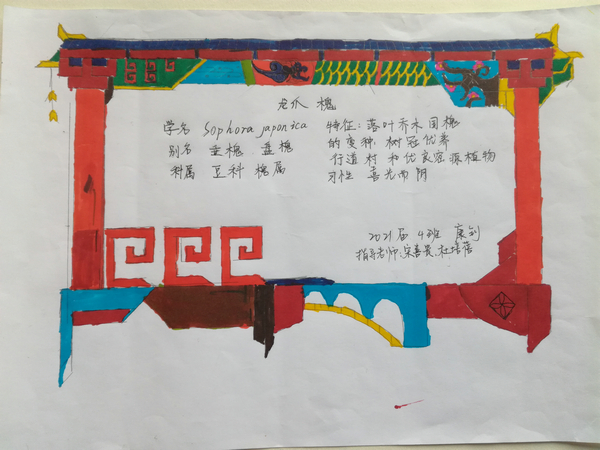 龙爪 槐
学名 Sophora japonica
别名 垂槐 盘槐
科属 豆科 槐属
特征: 落叶乔木国槐
的变种, 树冠优美
行道村 和优良容源植物
习性 喜光而阴
2021届 4班 康剑
指导老师: 宋喜景、杜培蓓